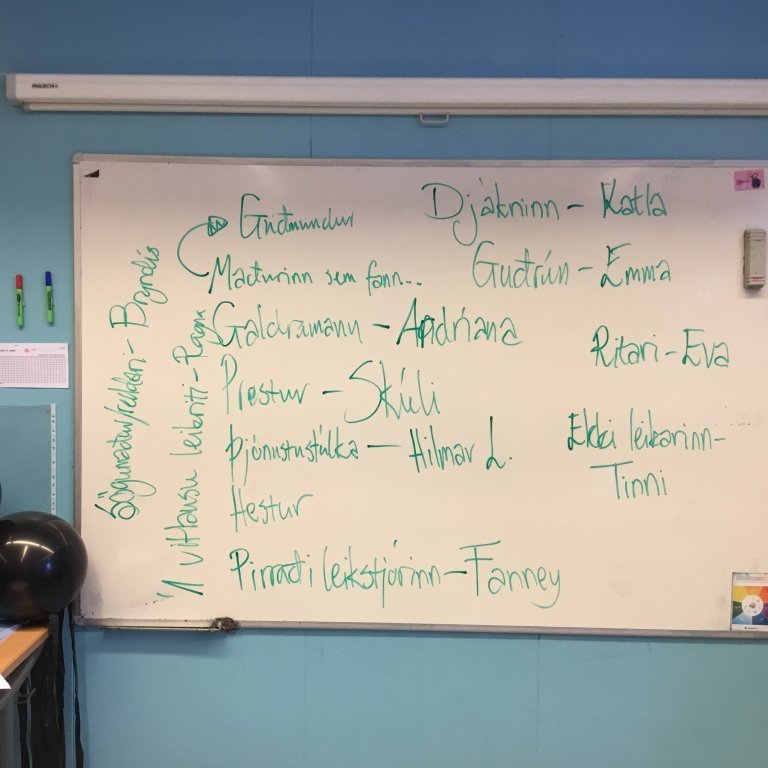 PROJECTA
Guðmundur
Maðurinn sem fann...
Galdramann - Aadríana
Prestur - Skúli
Þjónustustúlka - Hilmar L.
Hestur
Pirraði leikstjórinn - Fanney
Djákninn - Katla
Guðrún - Emma
Ritari - Eva
Ekki leikarinn -
Tinni
Sögumaður/reddari - Bryndís
Á vitlausu leikriti - Ragna